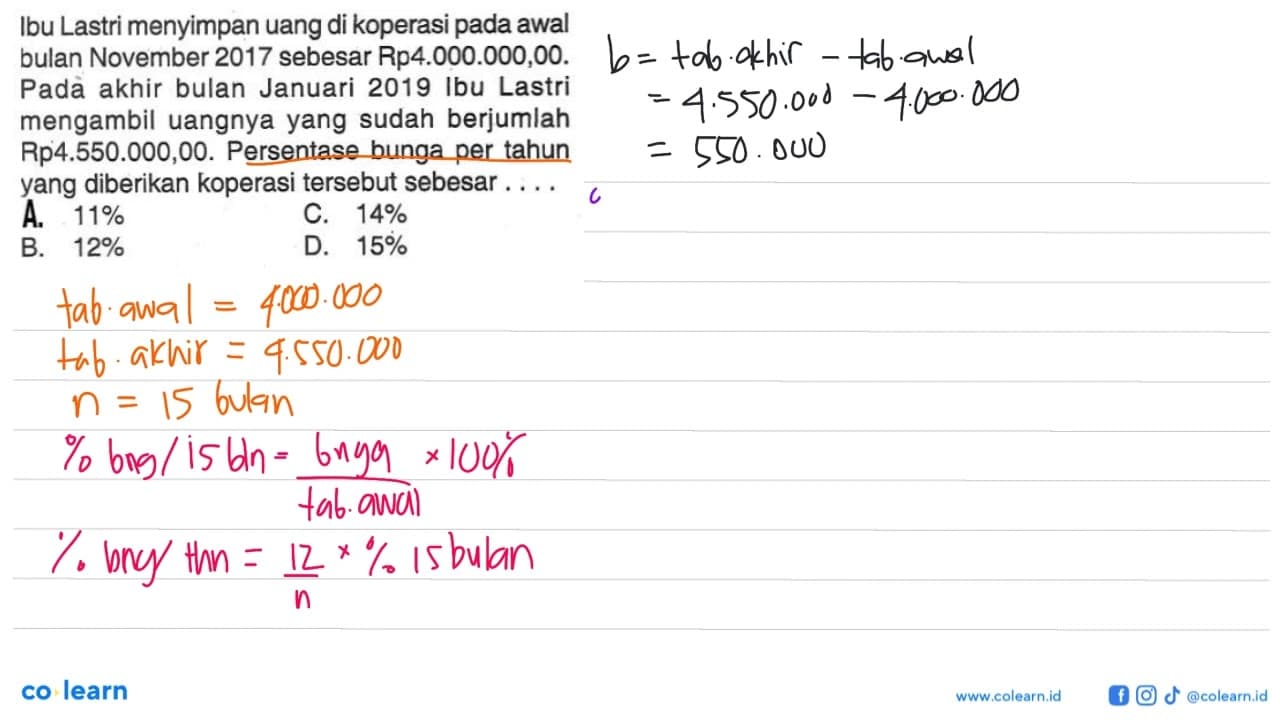 Ibu Lastri menyimpan uang di koperasi pada awal
bulan November 2017 sebesar Rp4.000.000,00.
Pada akhir bulan Januari 2019 Ibu Lastri
mengambil uangnya yang sudah berjumlah
Rp4.550.000,00. Persentase bunga per tahun
yang diberikan koperasi tersebut sebesar . . . .
A. 11% C. 14%
B. 12% D. 15%
tab. awal = 4.000.000
tab. akhir = 4.550.000
n = 15 bulan
% bng/15 bln = bnga/tab. awal × 100%
% bng/thn = 12/n × % 15 bulan
b = tab. akhir - tab. awal
= 4.550.000 - 4.000.000
= 550.000
co learn
www.colearn.id @colearn.id